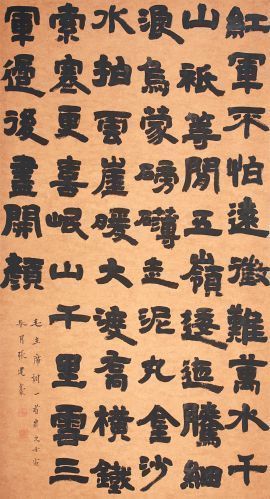 紅軍不怕遠徵難萬水千
山祇等閒五嶺逶迤騰細
浪烏蒙磅礴走泥丸金沙
水拍雲崖暖大渡橋橫鐵
索寒更喜岷山千里雪三
軍過後盡開顏
毛主席詞一首歲次壬寅